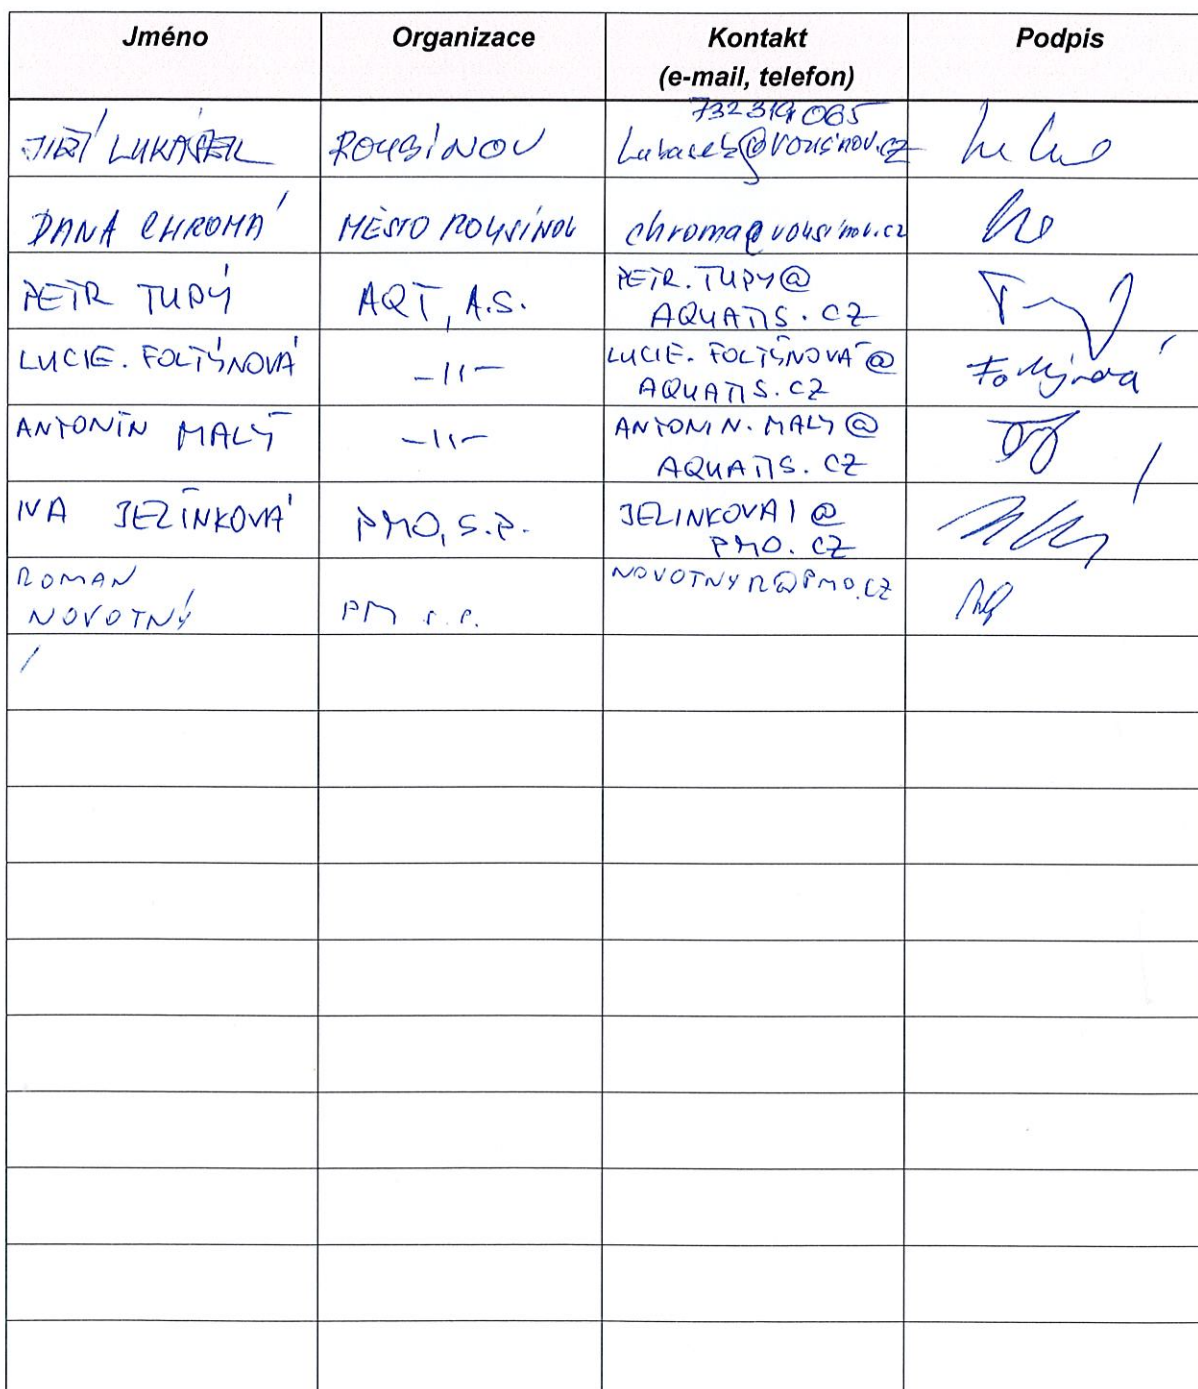 Jméno Organizace Kontakt Podpis
(e-mail, telefon)
732 314 065
JIŘÍ LUKÁŠEK ROUSÍNOV Lukasek@rousinov.cz
DANA CHROMÁ MĚSTO ROUSÍNOV chroma@rousinov.cz
PETR TUPÝ AQT, A.S. PETR.TUPY@
AQUATIS.CZ
LUCIE. FOLTÝNOVÁ -11- LUCIE.FOLTÝNOVÁ@ Foltýnová
AQUATIS.CZ
ANTONÍN MALÝ -11- ANTONIN.MALY@
AQUATIS.CZ
IVA JEZÍNKOVÁ PMO, S.P. JELINKOVAI@
PMO.CZ
ROMAN NOVOTNYR@PMO.CZ
NOVOTNÝ PM s.p.